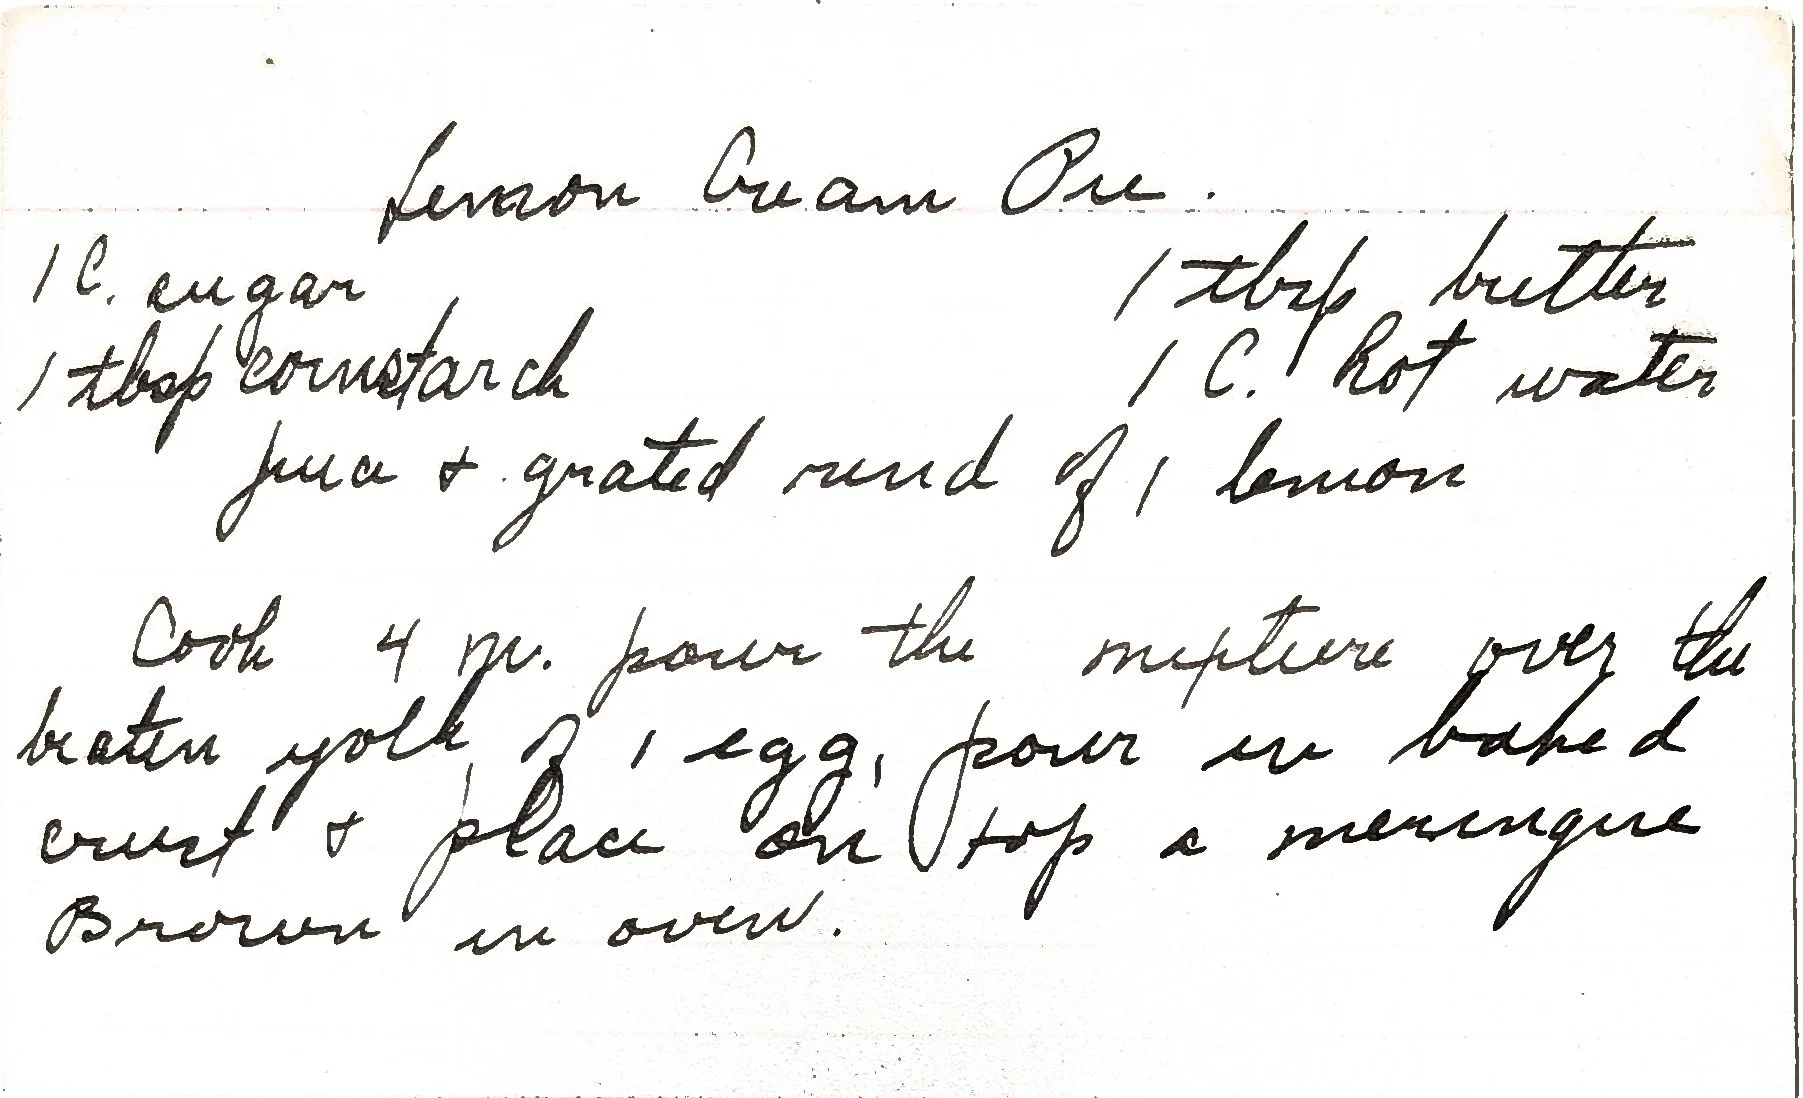 Lemon Cream Pie.
1 C. sugar 1 tbsp butter
1 tbsp cornstarch 1 C. hot water
juice & grated rind of 1 lemon
Cook 4 m. pour the mixture over the
beaten yolk of 1 egg, pour in baked
crust & place on top a meringue
Brown in oven.